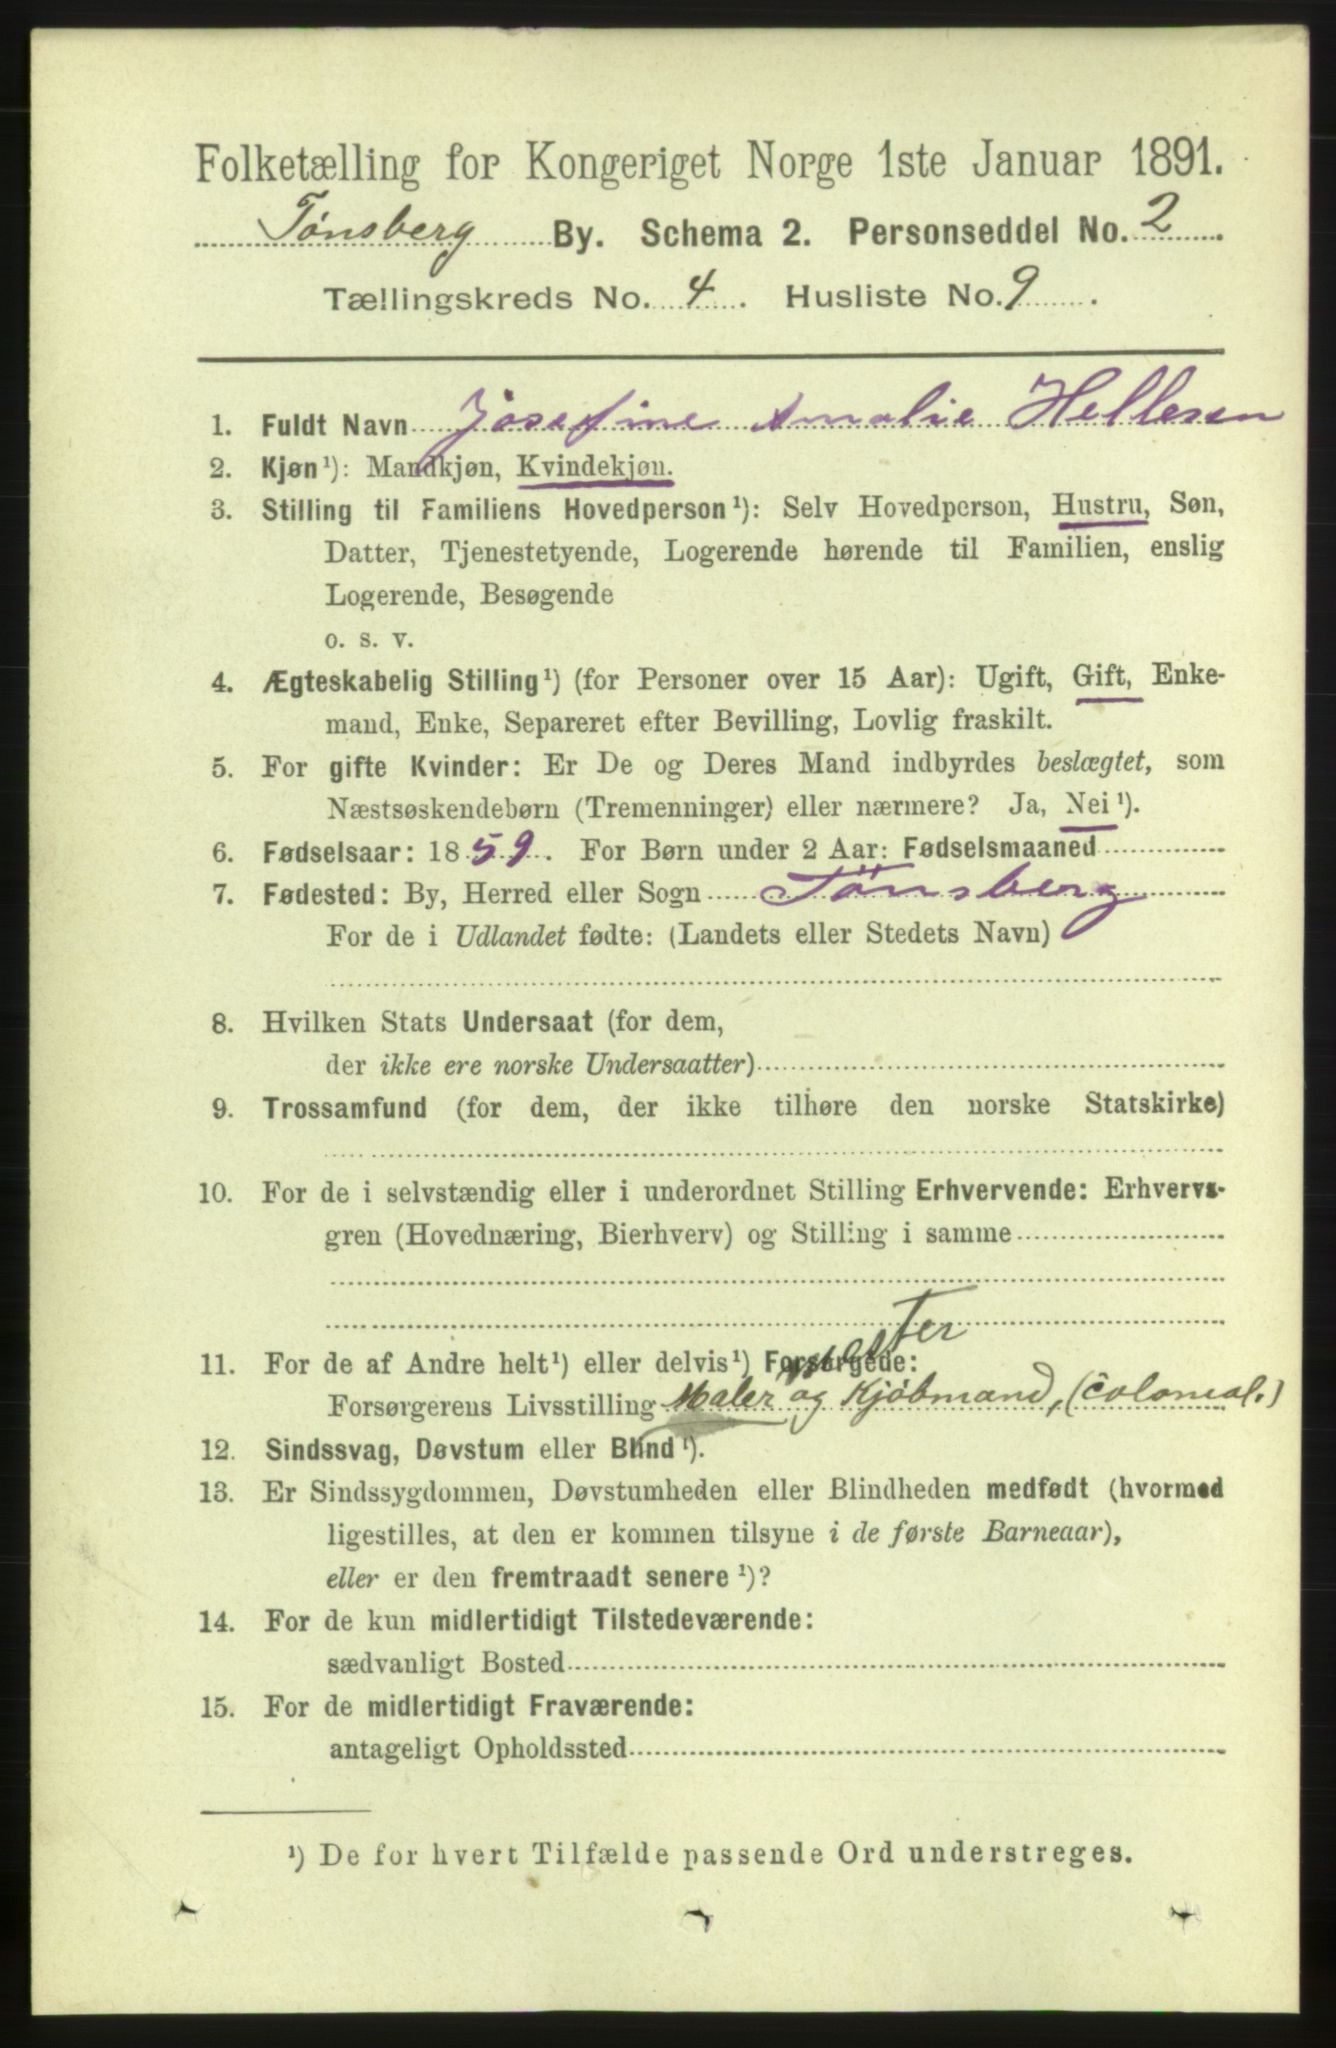 Folketælling for Kongeriget Norge 1ste Januar 1891.
Tønsberg By. Schema 2. Personseddel No. 2
Tællingskreds No. 4. Husliste No. 9.
1. Fuldt Navn Josefine Amalie Hellesen
2. Kjøn¹): Mandkjøn, Kvindekjøn.
3. Stilling til Familiens Hovedperson¹): Selv Hovedperson, Hustru, Søn,
Datter, Tjenestetyende, Logerende hørende til Familien, enslig
Logerende, Besøgende
o. s. v.
4. Ægteskabelig Stilling¹) (for Personer over 15 Aar): Ugift, Gift, Enke-
mand, Enke, Separeret efter Bevilling, Lovlig fraskilt.
5. For gifte Kvinder: Er De og Deres Mand indbyrdes beslægtet, som
Næstsøskendebørn (Tremenninger) eller nærmere? Ja, Nei¹).
6. Fødselsaar: 1859. For Børn under 2 Aar: Fødselsmaaned
7. Fødested: By, Herred eller Sogn Tönsberg
For de i Udlandet fødte: (Landets eller Stedets Navn)
8. Hvilken Stats Undersaat (for dem,
der ikke ere norske Undersaatter)
9. Trossamfund (for dem, der ikke tilhøre den norske Statskirke)
10. For de i selvstændig eller i underordnet Stilling Erhvervende: Erhvervs-
gren (Hovednæring, Bierhverv) og Stilling i samme
mester
11. For de af Andre helt¹) eller delvis¹) Forsørgede:
Forsørgerens Livsstilling Maler og Kjøbmand, (Colonial.)
12. Sindssvag, Døvstum eller Blind¹).
13. Er Sindssygdommen, Døvstumheden eller Blindheden medfødt (hvormed
ligestilles, at den er kommen tilsyne i de første Barneaar),
eller er den fremtraadt senere¹)?
14. For de kun midlertidigt Tilstedeværende:
sædvanligt Bosted
15. For de midlertidigt Fraværende:
antageligt Opholdssted
¹) De for hvert Tilfælde passende Ord understreges.